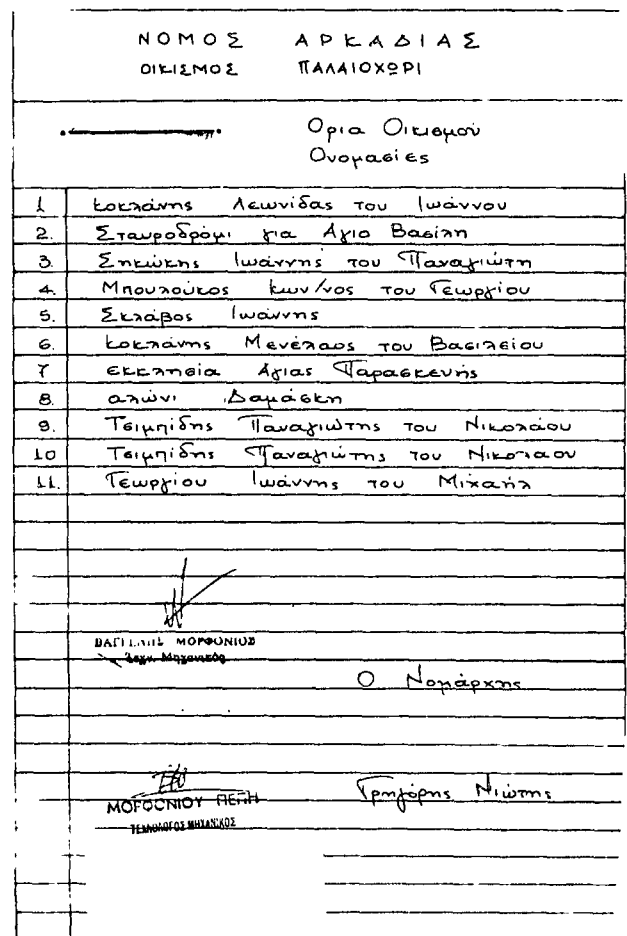 ΝΟΜΟΣ ΑΡΚΑΔΙΑΣ
ΟΙΚΙΣΜΟΣ ΠΑΛΑΙΟΧΩΡΙ
Ορια Οικισμού
Ονομασίες
1 Κοκλάνης Λεωνίδας του Ιωάννου
2. Σταυροδρόμι για Αγιο Βασίλη
3. Σηκώκης Ιωάννης του Παναγιώτη
4. Μπουλούκος Κων/νος του Γεωργίου
5. Σκλάβος Ιωάννης
6. Κοκλάνης Μενέλαος του Βασιλείου
7 εκκλησία Αγιας Παρασκευής
8. αλώνι Δαμάσκη
9. Τσιμπίδης Παναγιώτης του Νικολάου
10 Τσιμπίδης Παναγιώτης του Νικολαου
11. Γεωργίου Ιωάννης του Μιχαήλ
ΜΟΡΦΟΝΙΟΣ
Μηχανικός
Ο Νομάρχης
ΜΟΡΦΟΝΙΟΥ ΠΕΠΗ
Γρηγόρης Νιώτης
ΤΕΧΝΟΛΟΓΟΣ ΜΗΧΑΝΙΚΟΣ